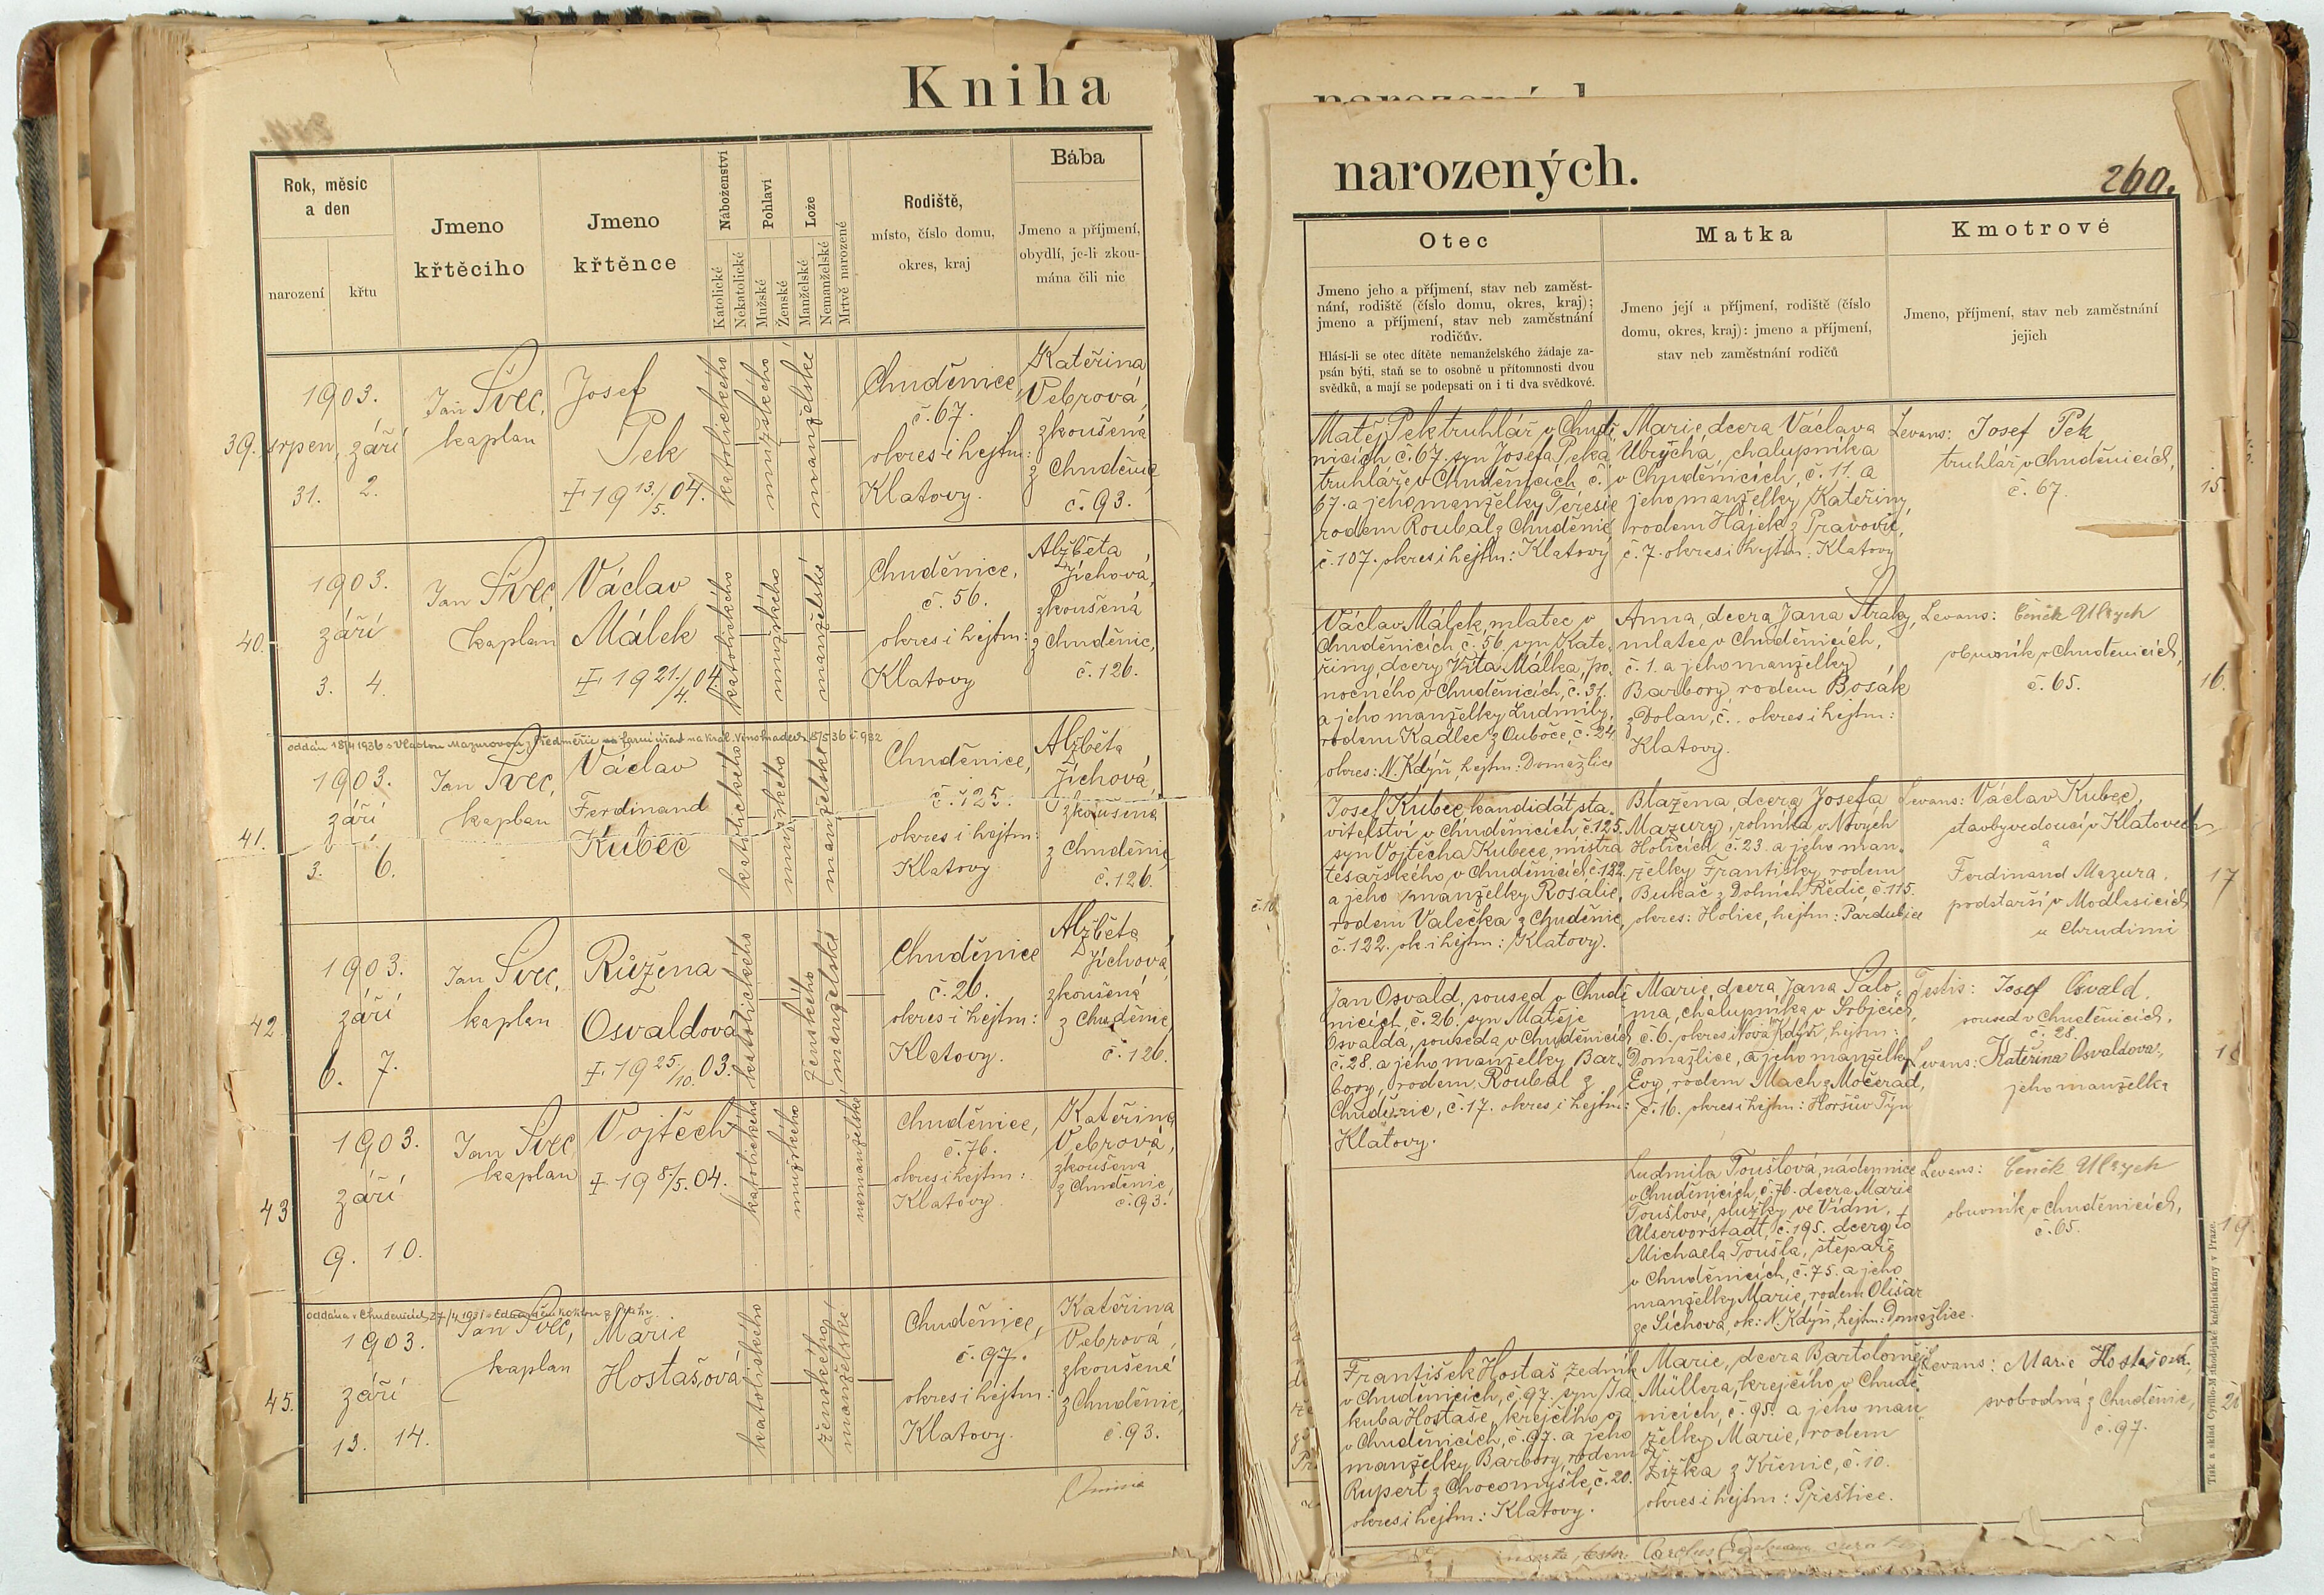 Kniha
Rok, měsíc
a den
narození
křtu
Jmeno
křtěcího
Jmeno
křtěnce
Náboženství
Katolické
Nekatolické
Pohlaví
Mužské
Ženské
Lože
Manželské
Nemanželské
Mrtvě narozené
Rodiště,
místo, číslo domu,
okres, kraj
Bába
Jmeno a příjmení,
obydlí, je-li zkou-
mána čili nic
39.
1903.
srpen, září
31. 2.
Jan Švec,
kaplan
Josef
Pek
19 13./5. 04.
katolického
mužského
manželské
Chuděnice,
č. 67.
okres i hejtm:
Klatovy.
Kateřina
Vebrová,
zkoušená
z Chuděnic
č. 93.
40.
1903.
září
3. 4.
Jan Švec,
kaplan
Václav
Málek
19 21./4. 04.
katolického
mužského
manželské
Chuděnice,
č. 56.
okres i hejtm:
Klatovy
Alžběta
Jíchová,
zkoušená
z Chuděnic,
č. 126.
oddán 18/4 1936 s Vlastou Mazurovou z Předměřic na farní úřad na Král. Vinohradech 8/5 36 č. 932
41.
1903.
září
3. 6.
Jan Švec,
kaplan
Václav
Ferdinand
Kubec
katolického
mužského
manželské
Chuděnice,
č. 125.
okres i hejtm:
Klatovy
Alžběta
Jíchová,
zkoušená
z Chuděnic
č. 126.
42.
1903.
září
6. 7.
Jan Švec,
kaplan
Růžena
Osvaldová
19 25./10. 03.
katolického
ženského
manželské
Chuděnice
č. 26.
okres i hejtm:
Klatovy.
Alžběta
Jíchová,
zkoušená
z Chuděnic
č. 126.
43
1903.
září
9. 10.
Jan Švec,
kaplan
Vojtěch
19 8./5. 04.
katolického
mužského
nemanželské
Chuděnice,
č. 76.
okres i hejtm:
Klatovy
Kateřina
Vebrová,
zkoušená
z Chuděnic
č. 93.
oddána v Chudenicích 27/4 1931 s
45.
1903.
září
13. 14.
Jan Švec,
kaplan
Marie
Hostašová
katolického
ženského
manželské
Chuděnice,
č. 97.
okres i hejtm:
Klatovy.
Kateřina
Vebrová,
zkoušená
z Chuděnic,
č. 93.
narozených.
260.
Otec
Jmeno jeho a příjmení, stav neb zaměst-
nání, rodiště (číslo domu, okres, kraj);
jmeno a příjmení, stav neb zaměstnání
rodičův.
Hlásí-li se otec dítěte nemanželského žádaje za-
psán býti, staň se to osobně u přítomnosti dvou
svědků, a mají se podepsati on i ti dva svědkové.
Matka
Jmeno její a příjmení, rodiště (číslo
domu, okres, kraj): jmeno a příjmení,
stav neb zaměstnání rodičů
Kmotrové
Jmeno, příjmení, stav neb zaměstnání
jejich
Matěj Pek truhlář v Chudě
nicích č. 67. syn Josefa Peka
truhláře v Chuděnicích č.
67. a jeho manželky Terésie
rodem Roubal z Chuděnic
č. 107. okres i hejtm: Klatovy
Marie, dcera Václava
Ubrychá, chalupníka
v Chuděnicích, č. 11. a
jeho manželky Kateřiny,
rodem Hájek z Pravovic,
č. 7. okres i hejtm: Klatovy
Levans: Josef Pek
truhlář v Chuděnicích,
č. 67.
15.
Václav Málek, mlatec v
Chuděnicích č. 56. syn Kate-
řiny, dcery Víta Málka, po-
nocného v Chuděnicích, č. 31.
a jeho manželky Ludmily,
rodem Kadlec z Ouboče, č. 24
okres: N. Kdýň, hejtm: Domažlice
Anna, dcera Jana Straky,
mlatce v Chuděnicích,
č. 1. a jeho manželky
Barbory rodem Bosák
z Dolan, č. . okres i hejtm:
Klatovy.
Levans: Čeněk Ulrych
obuvník v Chuděnicích,
č. 65.
16.
Josef Kubec, kandidát sta-
vitelství v Chuděnicích, č. 125.
syn Vojtěcha Kubece, mistra
tesařského v Chuděnicích č. 122.
a jeho manželky Rosálie,
rodem Valečka z Chuděnic,
č. 122. ok. i hejtm: Klatovy.
Blažena, dcera Josefa
Mazury, rolníka v Nových
Holicích, č. 23. a jeho man-
želky Františky rodem
Bukač z Dolních Ředic, č. 115.
okres: Holice, hejtm: Pardubice
Levans: Václav Kubec,
stavbyvedoucí v Klatovech
a
Ferdinand Mazura,
podstarší v Modlešicích
u Chrudimi
17
Jan Osvald, soused v Chudě
nicích, č. 26. syn Matěje
Osvalda, souseda v Chuděnicích
č. 28. a jeho manželky Bar-
bory, rodem Roubal z
Chuděnic, č. 17. okres i hejtm:
Klatovy.
Marie, dcera Jana Palo-
ma, chalupníka v Srbicích,
č. 6. okres Nová Kdýň, hejtm:
Domažlice, a jeho manželky
Evy, rodem Mach z Močerad,
č. 16. okres i hejtm: Horšův Týn
Testis: Josef Osvald,
soused v Chuděnicích,
č. 28.
Levans: Kateřina Osvaldova,
jeho manželka
18
Ludmila Toušlová, nádennice
v Chuděnicích, č. 76. dcera Marie
Toušlové, služky ve Vídni,
Alservorstadt, č. 195. dcery to
Michaela Toušla, štěpaře
v Chuděnicích, č. 75. a jeho
manželky Marie, rodem Olišar
ze Síchova, ok: N. Kdýň, hejtm: Domažlice.
Levans: Čeněk Ulrych
obuvník v Chuděnicích,
č. 65.
19.
František Hostaš zedník
v Chuděnicích, č. 97. syn Ja
kuba Hostaše, krejčího
v Chuděnicích, č. 97. a jeho
manželky Barbory, rodem
Rupert z Chocomyšle, č. 20.
okres i hejtm: Klatovy.
Marie, dcera Bartoloměje
Müllera, krejčího v Chudě-
nicích, č. 95. a jeho man-
želky Marie, rodem
Žižka z Křenic, č. 10.
okres i hejtm: Přeštice.
Levans: Marie Hostašová,
svobodná z Chuděnic,
č. 97.
Tisk a sklad Cyrillo-Methodějské knihtiskárny v Praze.